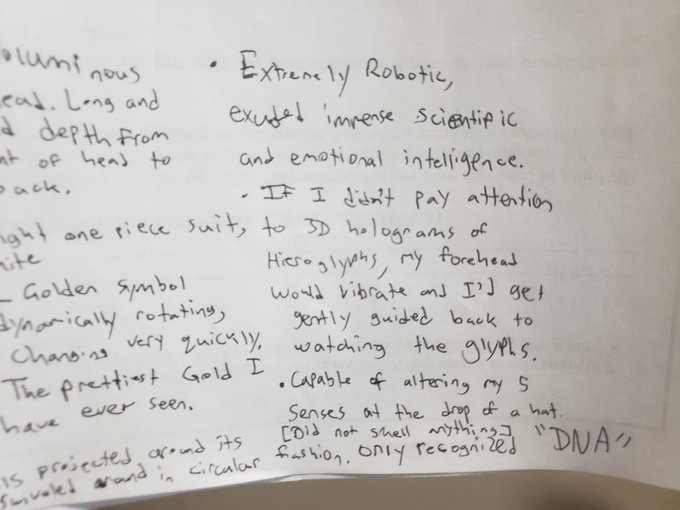 oluminous
ead. Long and
d depth from
nt of head to
back.
ight one piece suit,
ite
Golden Symbol
dynamically rotating,
Changing very quickly.
The prettiest Gold I
have ever seen.
is projected around its
swiveled around in circular fashion. only recognized "DNA"
• Extremely Robotic,
exuded immense Scientific
and emotional intelligence.
• If I didn't pay attention
to 3D holograms of
Hieroglyphs, my forehead
would vibrate and I'd get
gently guided back to
watching the glyphs.
• Capable of altering my 5
Senses at the drop of a hat.
[Did not smell anything]